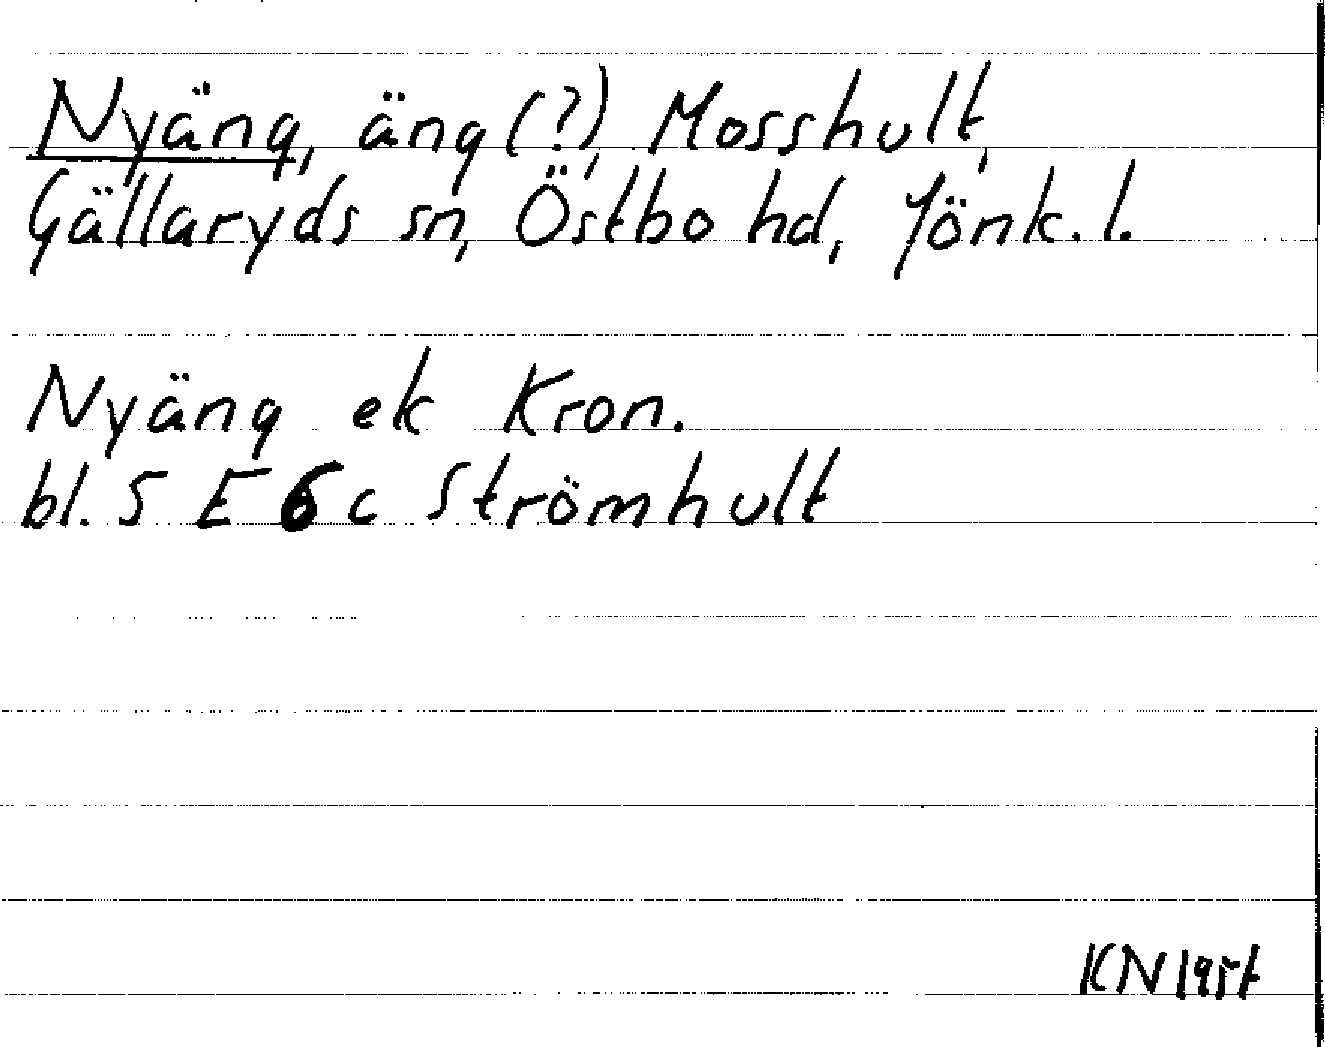 Nyäng, äng (?), Mosshult,
Gällaryds sn, Östbo hd, Jönk. l.
Nyäng ek Kron.
bl. 5 E 6 c Strömhult
KN